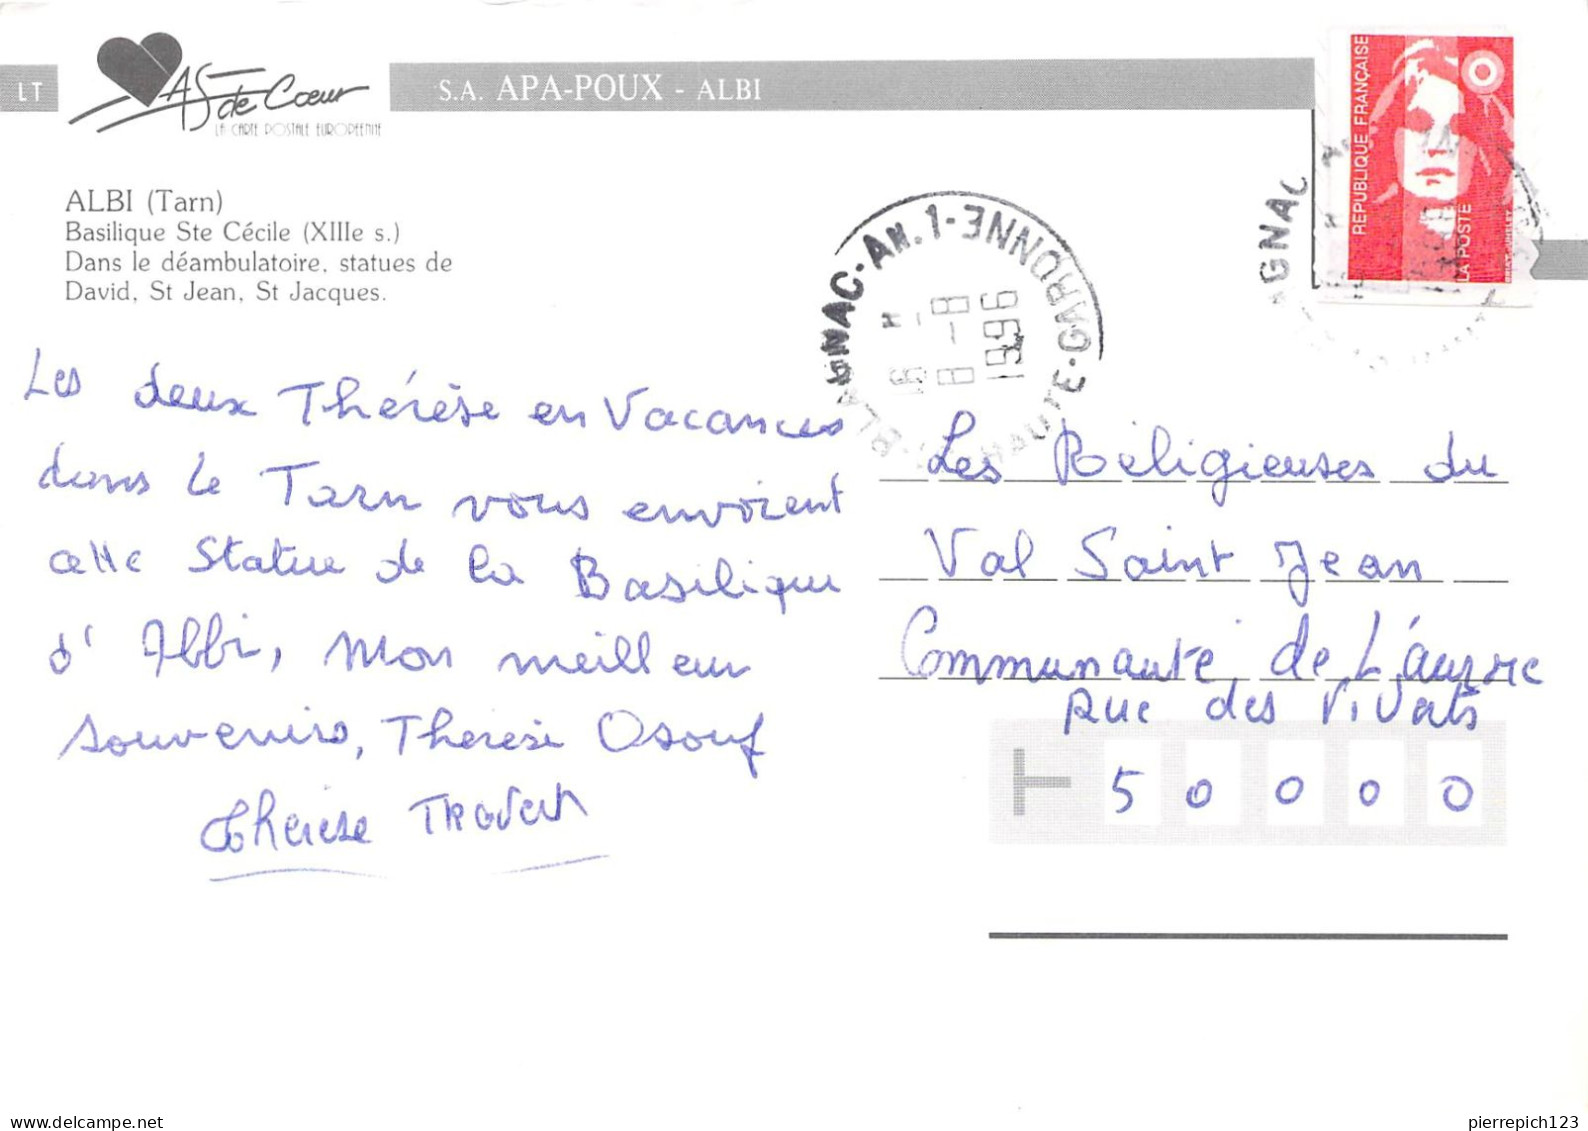 LT
AS de Cœur
LA CARTE POSTALE EUROPÉENNE
S.A. APA-POUX - ALBI
RÉPUBLIQUE FRANÇAISE
LA POSTE
ALBI (Tarn)
Basilique Ste Cécile (XIIIe s.)
Dans le déambulatoire, statues de
David, St Jean, St Jacques.
BLAGNAC-AN.1-GARONNE-HAUTE
16 H -
8 - 8
1996
GNAC
Les deux Thérèse en Vacances
dans le Tarn vous envoient
cette Statue de la Basilique
d' Albi, Mon meilleur
souvenirs, Therese Osouf
Thérèse TRavert
Les Réligieuses du
Val Saint Jean
Communauté de L'áurore
Rue des ViVats
T 5 0 0 0 0
pierrepich123